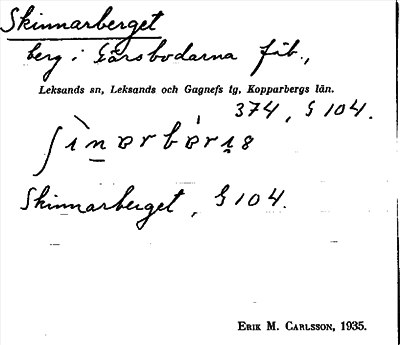 Skinnarberget
berg i Gårsbodarna fäb.,
Leksands sn, Leksands och Gagnefs tg, Kopparbergs län.
374, G 104.
Skinnarberget, G 104.
ERIK M. CARLSSON, 1935.